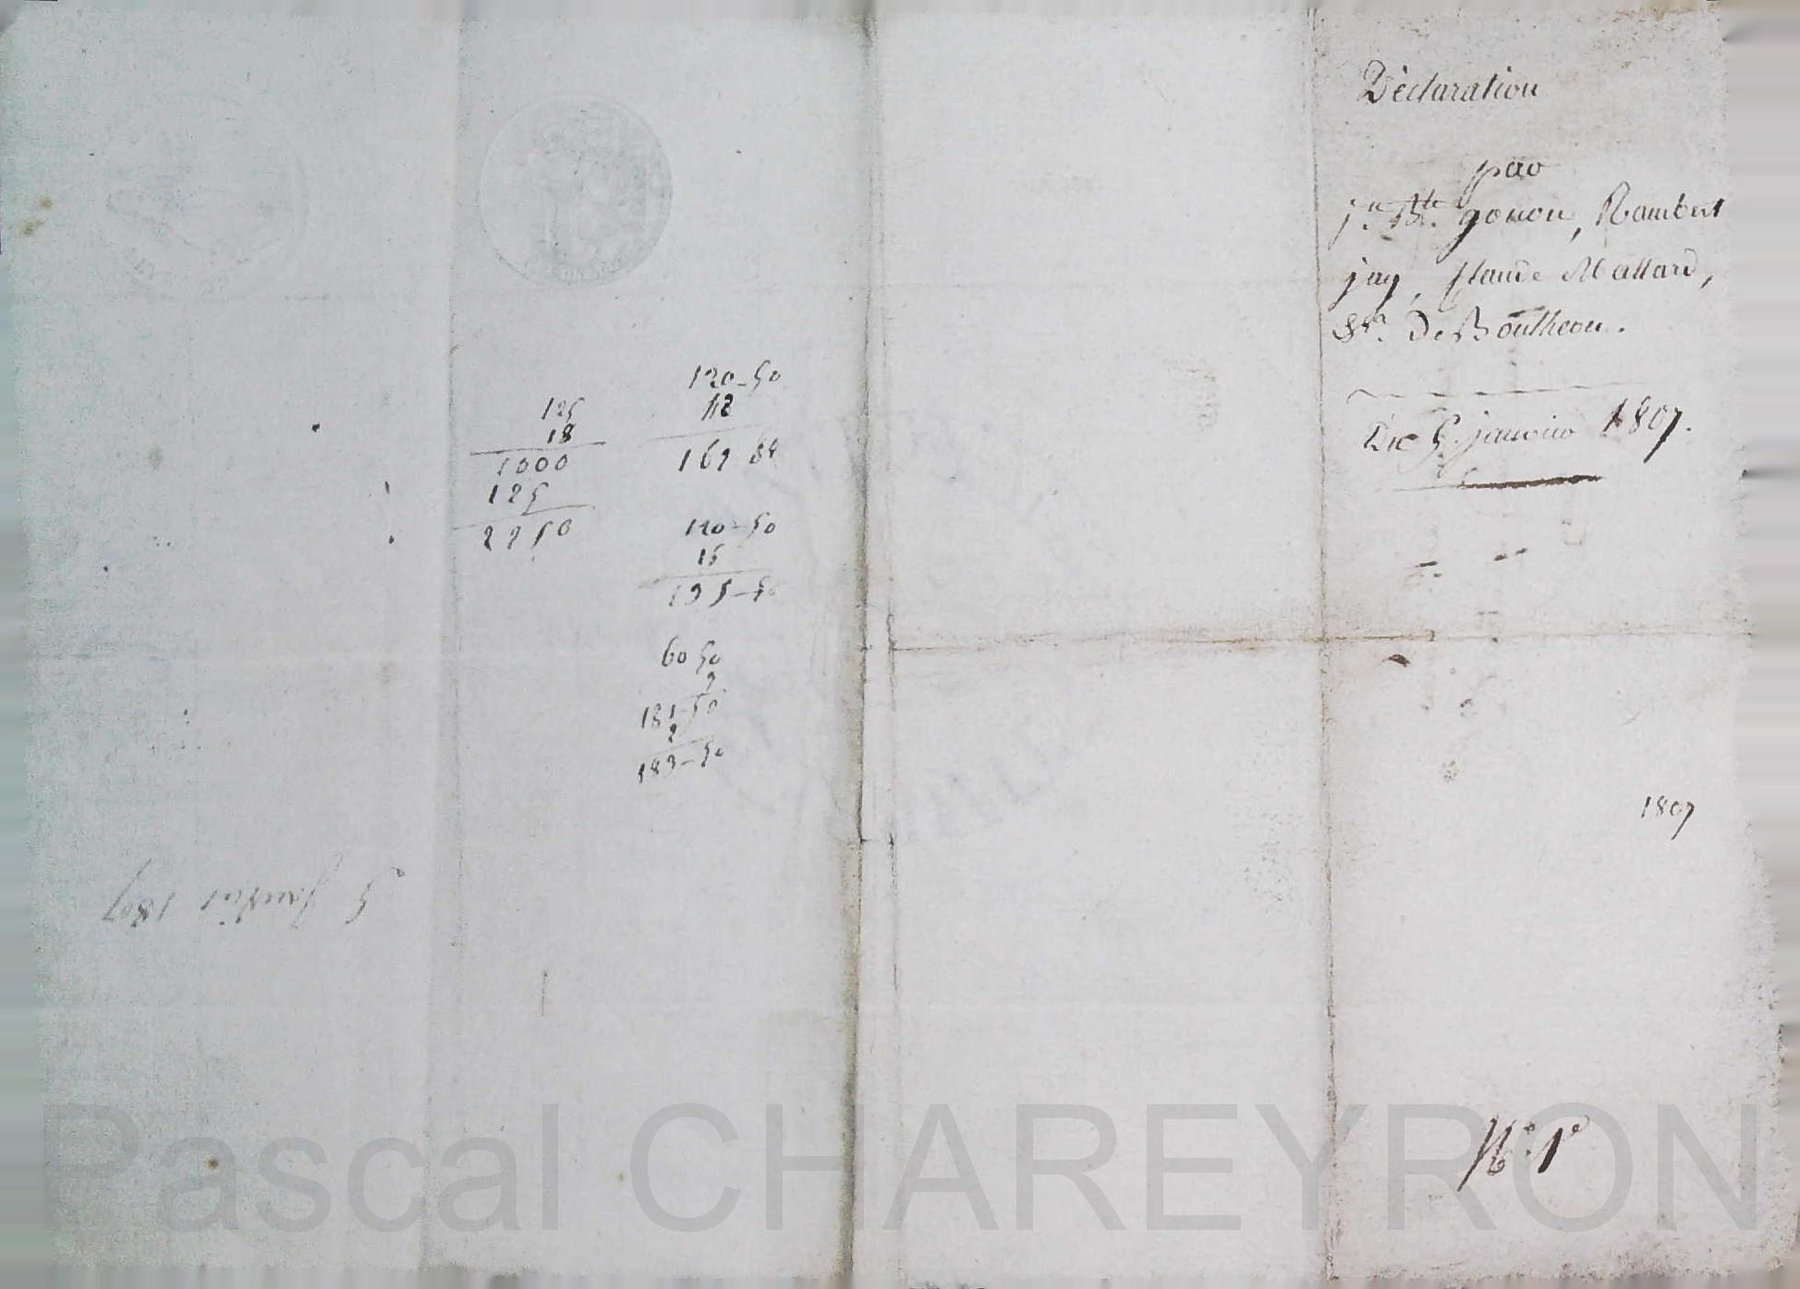 Déclaration
par
jn. Bte. gonon, Rambert
jay, Claude Mallard,
Srs. De Bouthéon.
Du 5. janvier 1807.
1807
N.° 1°
120-50
12
162 84
120-50
15
135-50
60 50
3
181-50
2
183-50
125
18
1000
125
2250
5 Janvier 1807
Pascal CHAREYRON